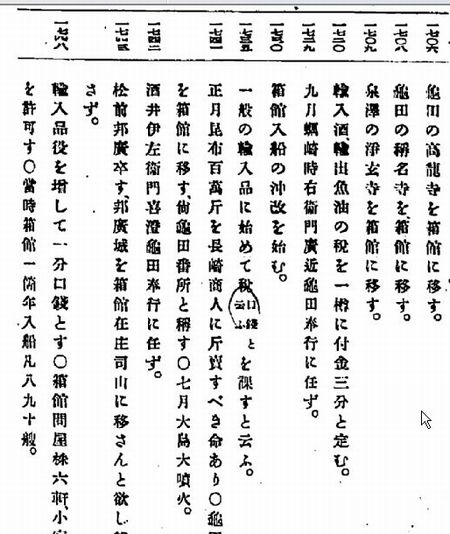 一七〇六 龜田の高龍寺を箱館に移す。
一七〇八 龜田の稱名寺を箱館に移す。
一七〇九 泉澤の淨玄寺を箱館に移す。
一七二〇 輸入酒、輸出魚油の税を一樽に付金三分と定む。
一七二九 九月蠣崎時右衞門廣近龜田奉行に任ず。
一七三〇 箱館入船の沖改を始む。
一七三五 一般の輸入品に始めて税(口錢と云ふ)を課すと云ふ。
一七四一 正月昆布百萬斤を長崎商人に斤賣すべき命あり〇龜
を箱館に移す、尙龜田番所と稱す〇七月大島大噴火。
一七四二 酒井伊左衞門喜澄龜田奉行に任ず。
一七四三 松前邦廣卒す、邦廣城を箱館在庄司山に移さんと欲し
さず。
一七四八 輸入品役を增して一分口錢とす〇箱館問屋株六軒、小
を許可す〇當時箱館一箇年入船凡八九十艘。